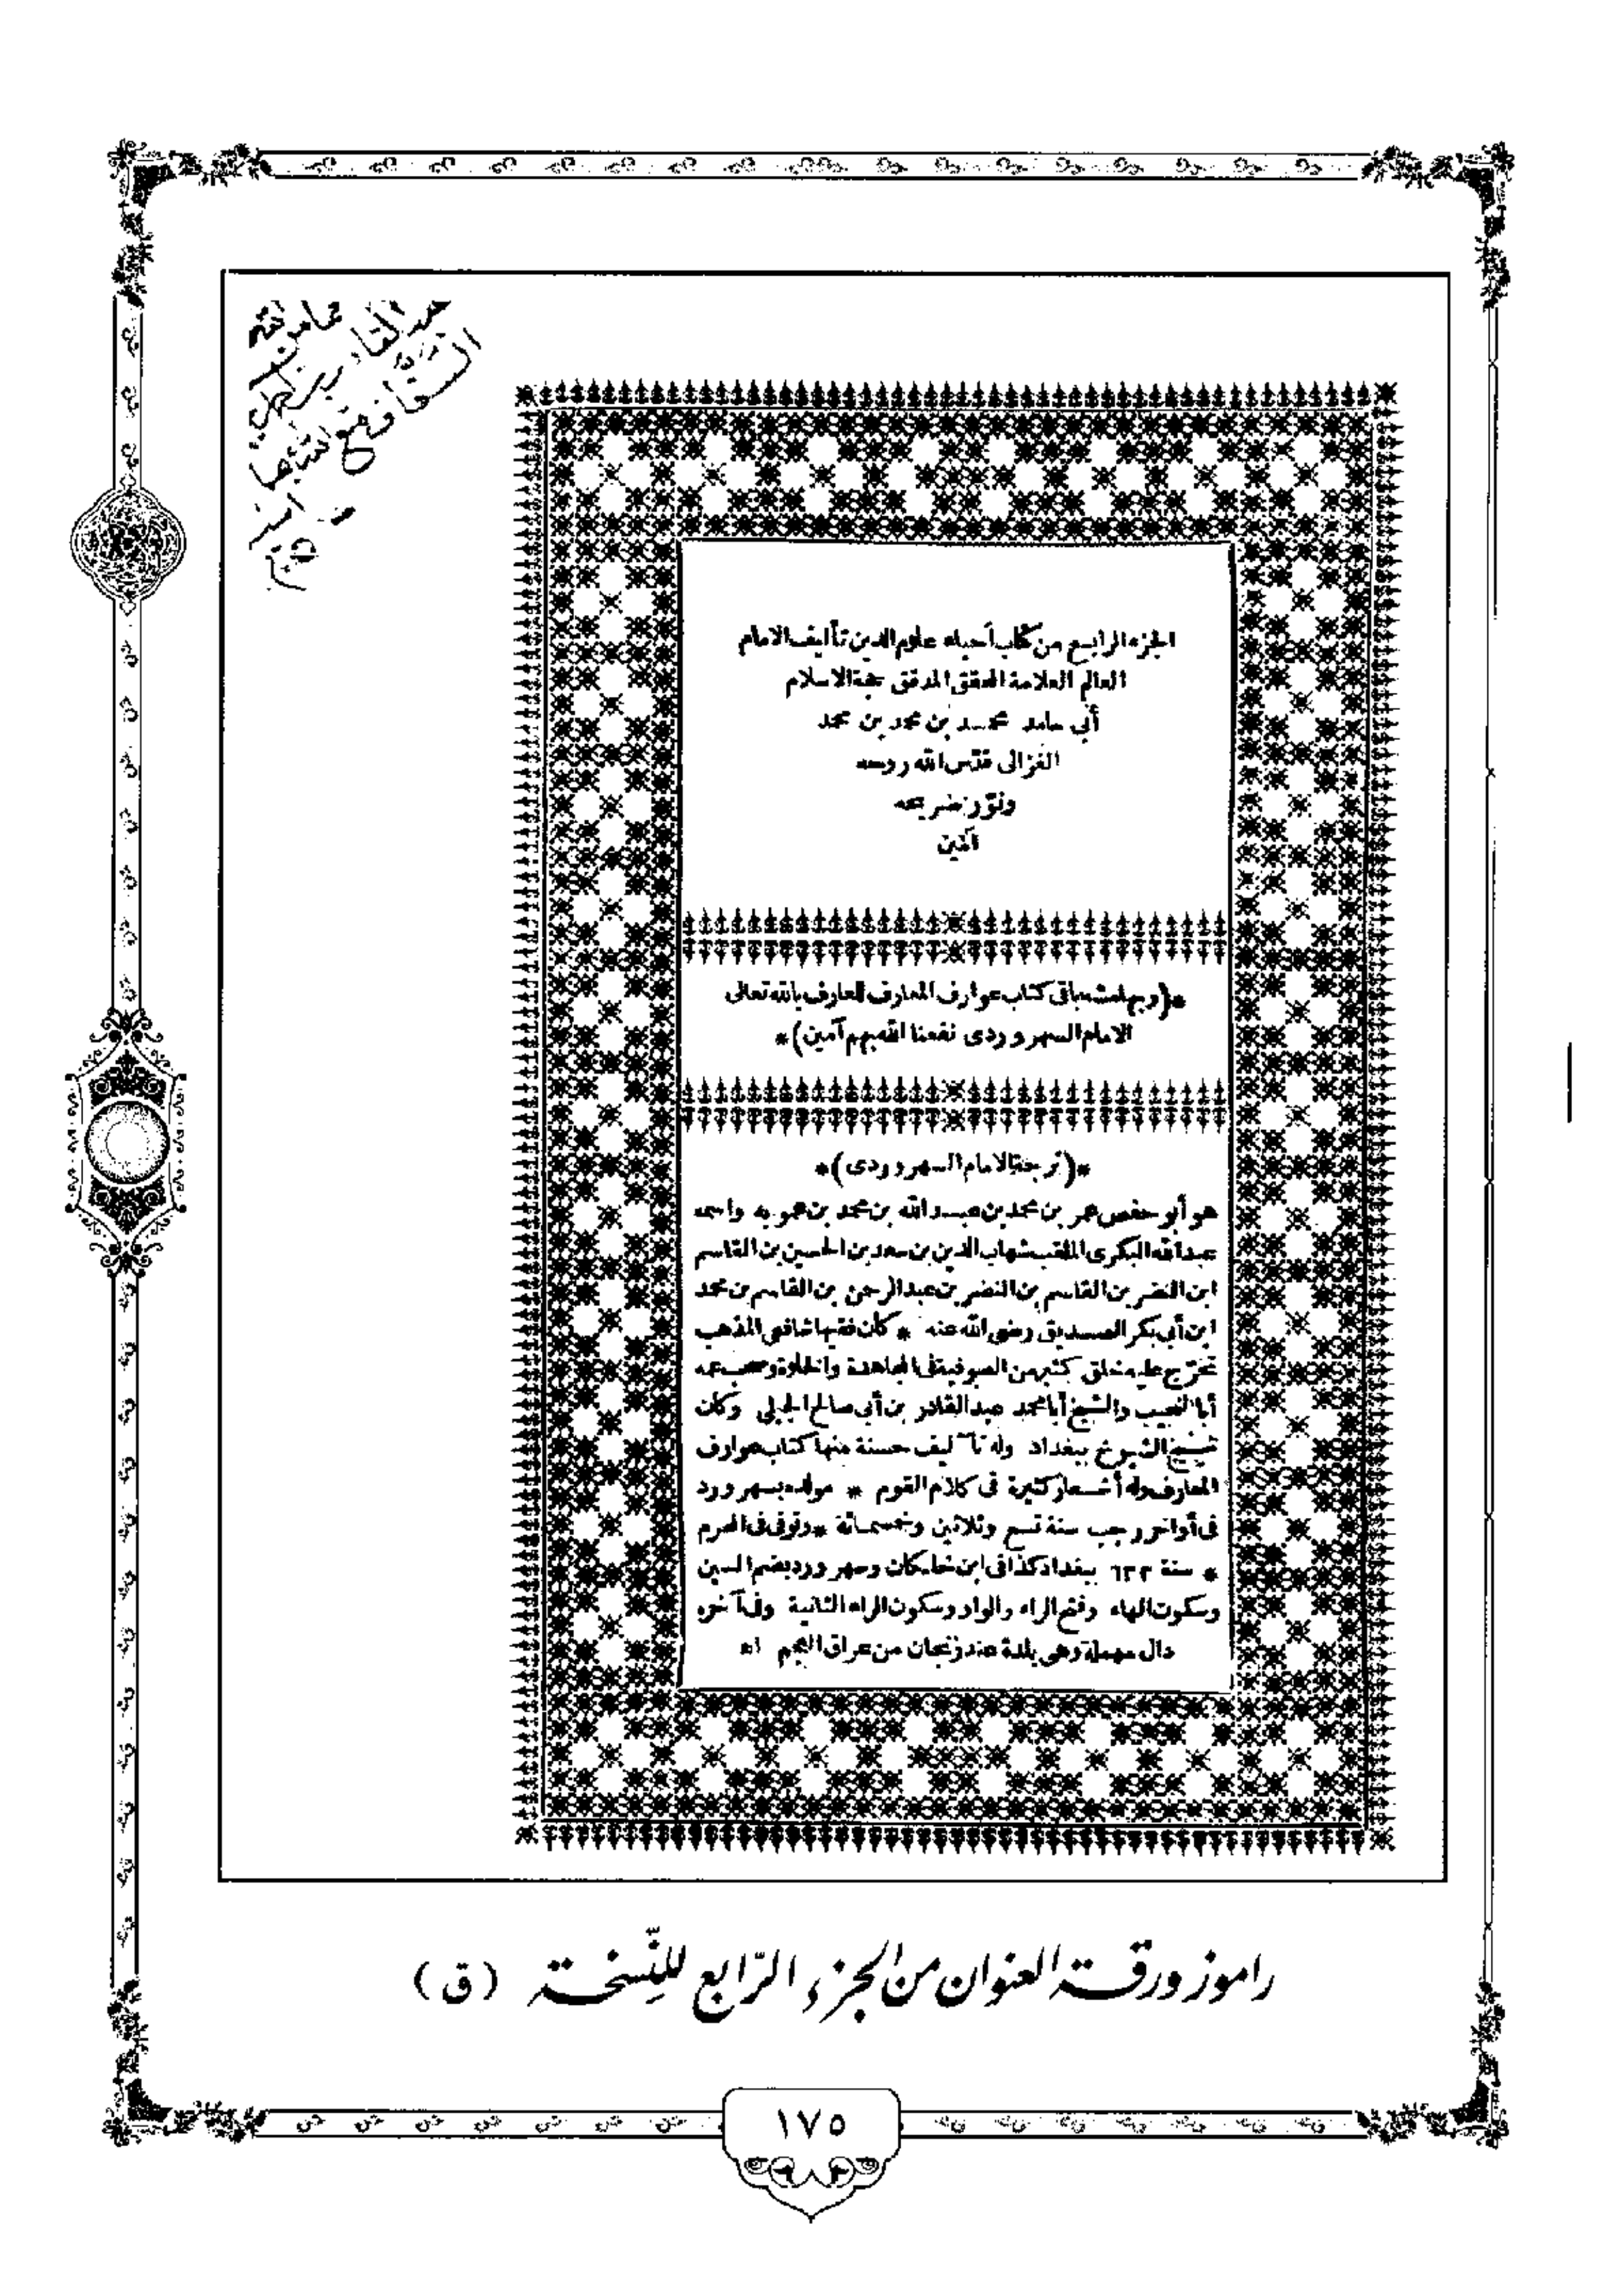 الجزء الرابع من كتاب احياء علوم الدين تأليف الامام
العالم العلامة المحقق المدقق حجة الاسلام
أبى حامد محمد بن محمد بن محمد
الغزالى قدس الله روحه
ونور ضريحه
آمين
*(وبهامشه باقى كتاب عوارف المعارف للعارف بالله تعالى
الامام السهروردى نفعنا الله بهم آمين)*
*(ترجمة الامام السهروردى)*
هو أبو حفص عمر بن محمد بن عبد الله بن محمد بن عمويه واسمه
عبد الله البكرى الملقب شهاب الدين بن سعد بن الحسين بن القاسم
ابن النضر بن القاسم بن النضر بن عبد الرحمن بن القاسم بن محمد
ابن أبى بكر الصديق رضى الله عنه * كان فقيها شافعى المذهب
تخرّج عليه خلق كثير من الصوفية فى المجاهدة والخلوة وصحب عمه
أبا النجيب والشيخ أبا محمد عبد القادر بن أبى صالح الجيلى وكان
شيخ الشيوخ ببغداد وله تآليف حسنة منها كتاب عوارف
المعارف وله أشعار كثيرة فى كلام القوم * مولده بسهرورد
فى أواخر رجب سنة تسع وثلاثين وخمسمائة * وتوفى فى المحرم
* سنة ٦٣٢ ببغداد كذا فى ابن خلكان وسهرورد بضم السين
وسكون الهاء وفتح الراء والواو وسكون الراء الثانية وفى آخره
دال مهملة وهى بلدة عند زنجان من عراق العجم اه
راموز ورقة العنوان من الجزء الرّابع للنّسخة (ق)
١٧٥